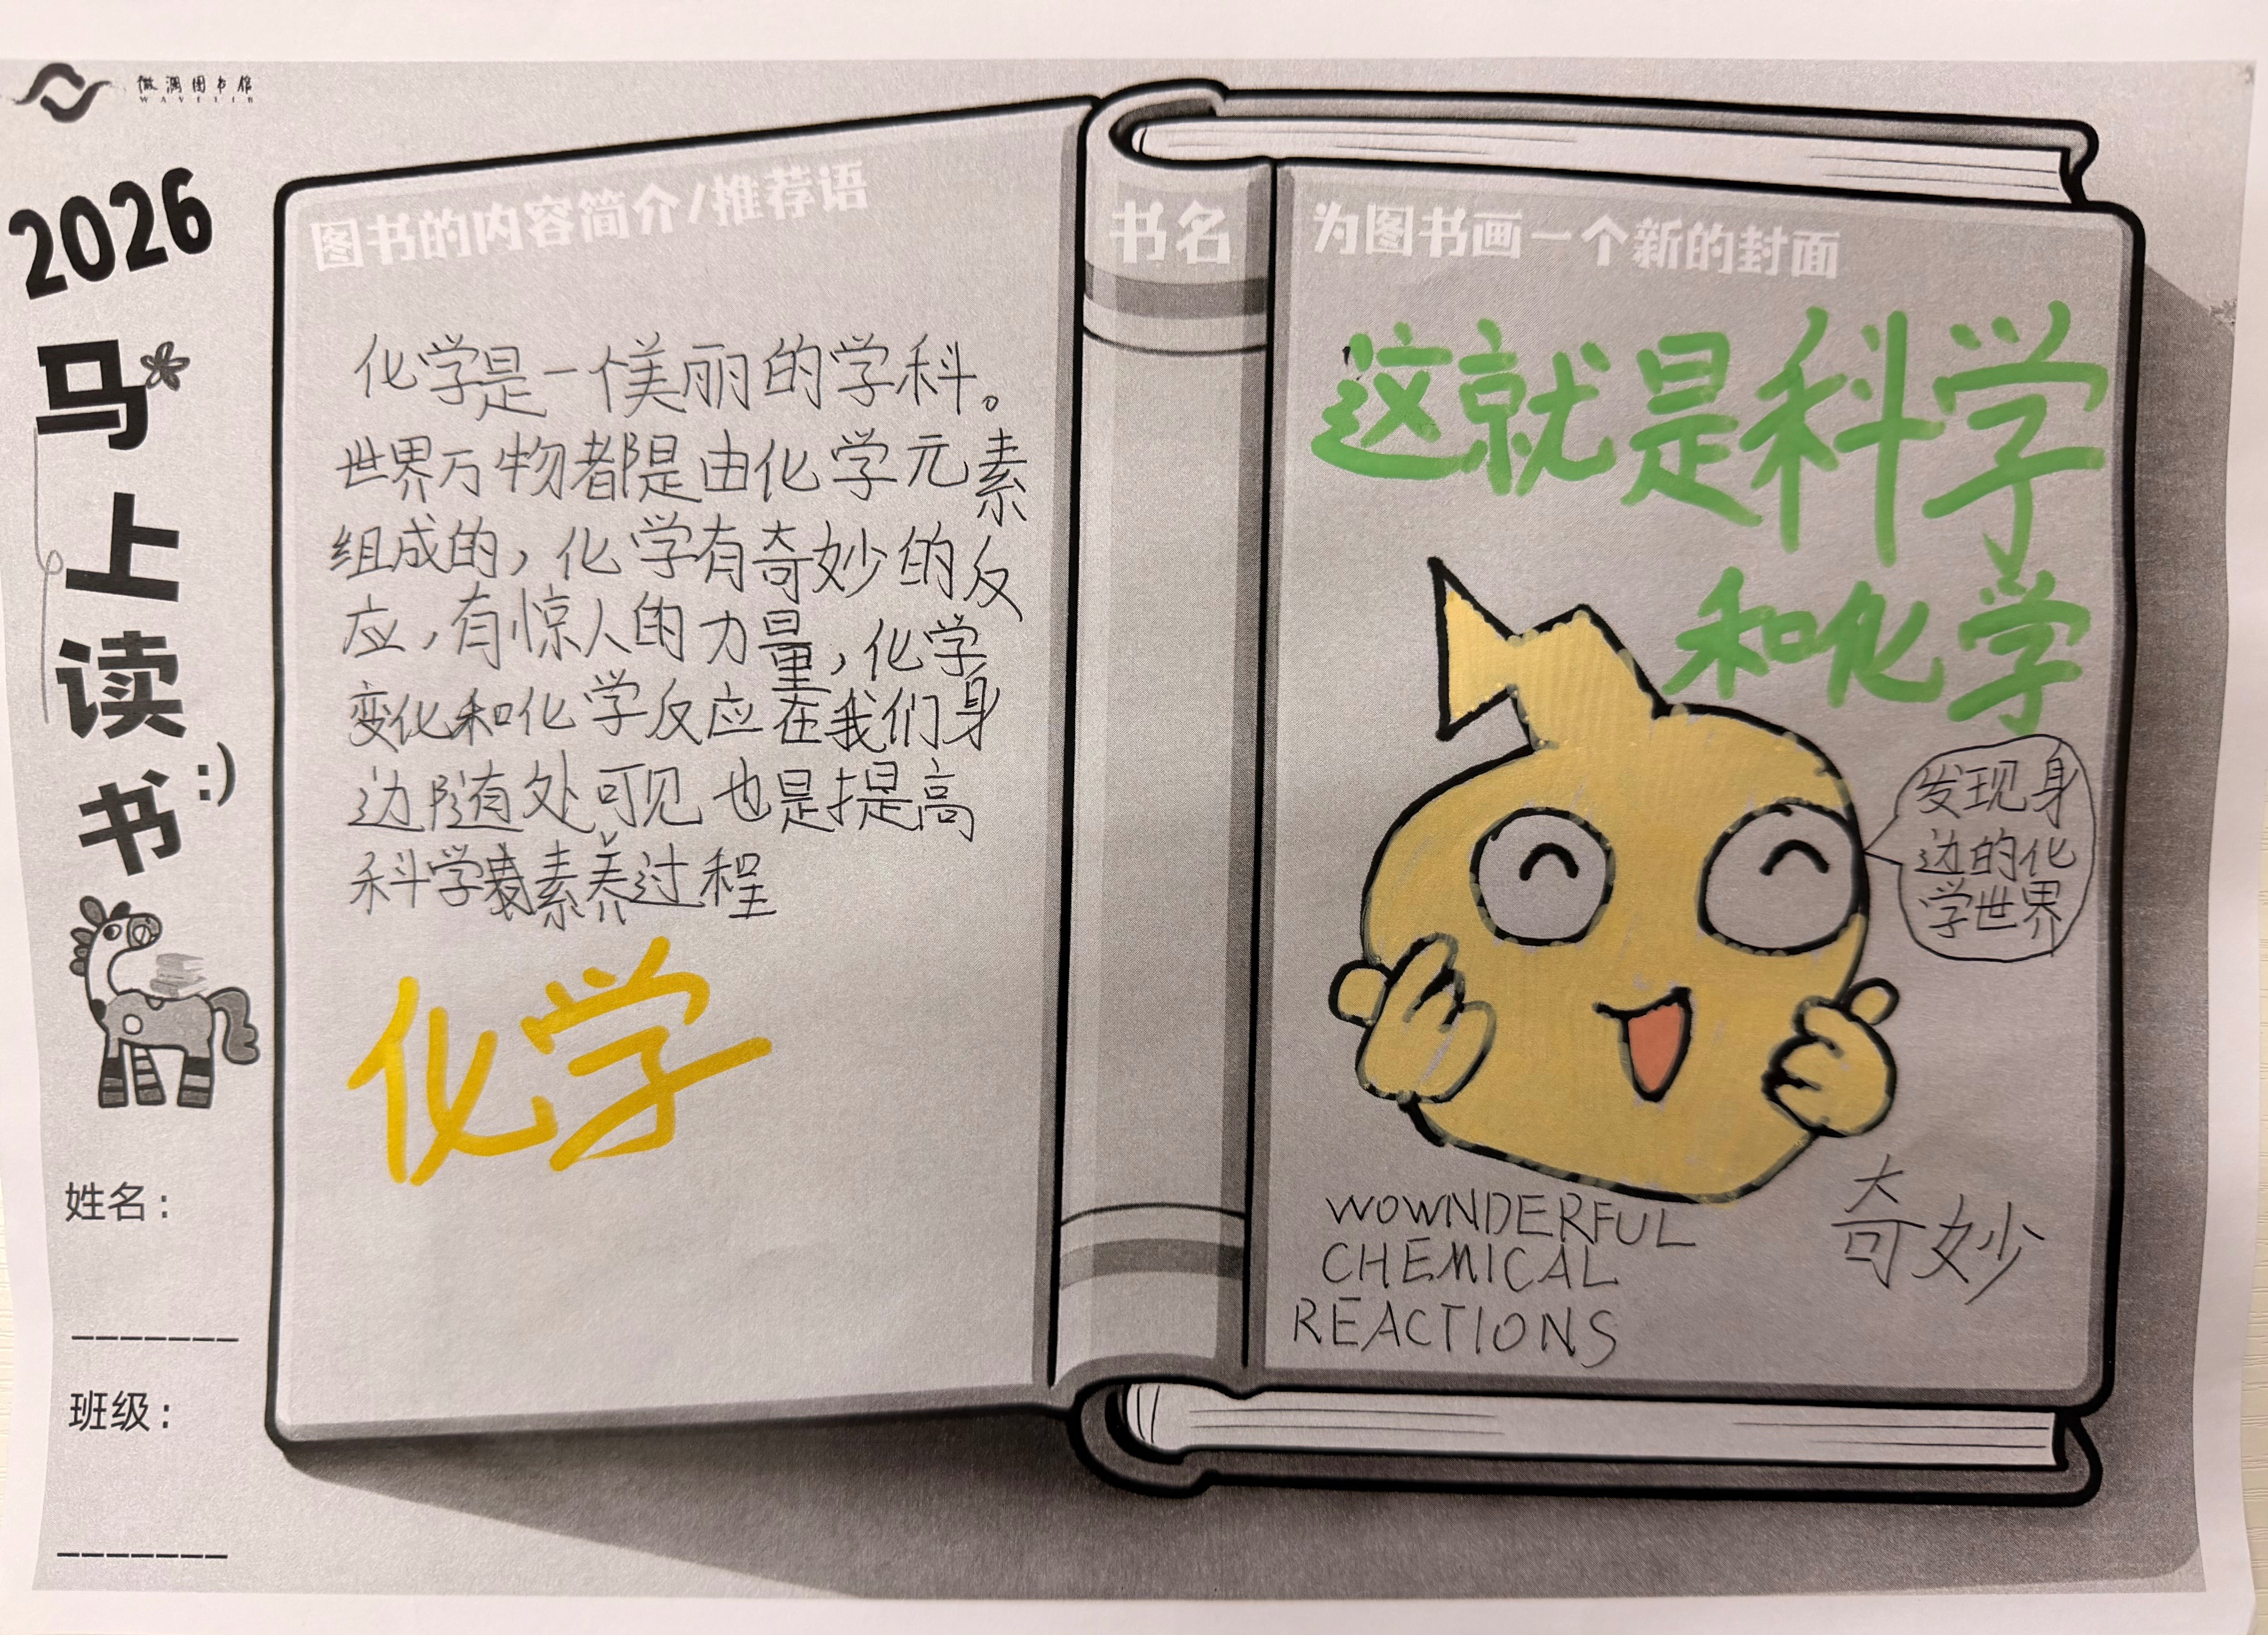 微澜图书馆
WAVELIB
2026
马上读书:)
姓名：
班级：
图书的内容简介/推荐语
化学是一个美丽的学科。
世界万物都是由化学元素
组成的，化学有奇妙的反
应，有惊人的力量，化学
变化和化学反应在我们身
边随处可见也是提高
科学素养过程
化学
书名
为图书画一个新的封面
这就是科学
和化学
发现身
边的化
学世界
WOWNDERFUL
CHEMICAL
REACTIONS
奇妙